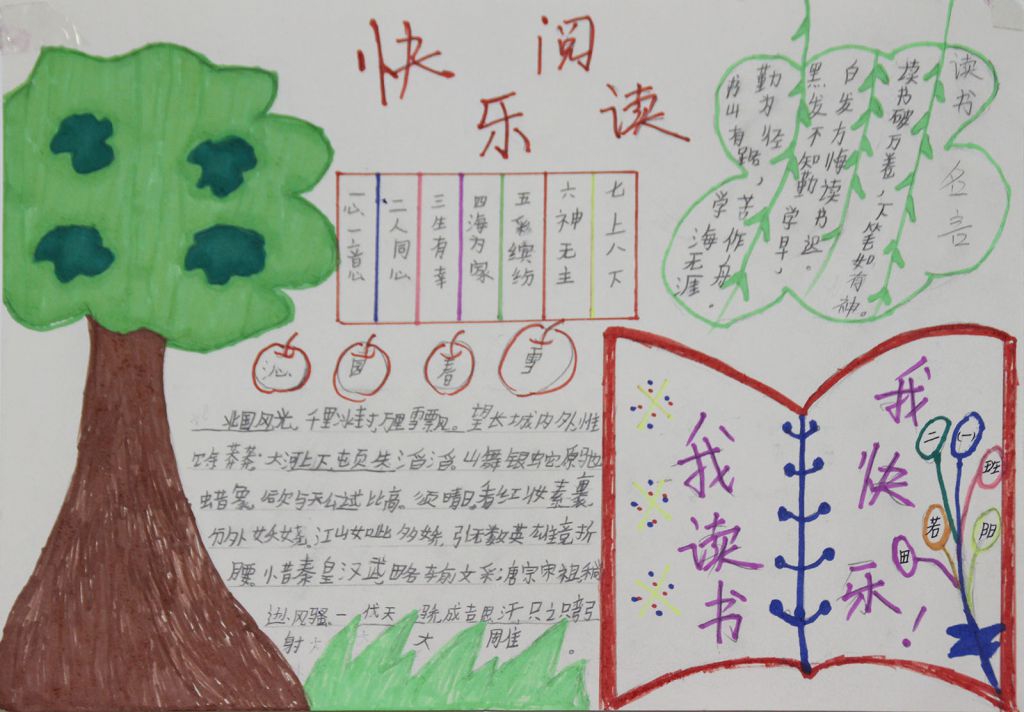 快 阅
乐 读
一心一意
二人同心
三生有幸
四海为家
五彩缤纷
六神无主
七上八下
读书
名言
读书破万卷，下笔如有神。
白发方悔读书迟。
黑发不知勤学早，
书山有路
勤为径，
学海无涯
苦作舟。
沁 园 春 雪
北国风光，千里冰封，万里雪飘。望长城内外，惟
余莽莽；大河上下，顿失滔滔。山舞银蛇，原驰
蜡象，欲与天公试比高。须晴日，看红妆素裹，
分外妖娆。江山如此多娇，引无数英雄竞折
腰。惜秦皇汉武，略输文采；唐宗宋祖，稍
逊风骚。一代天骄，成吉思汗，只
射 大
我读书
我快乐！
二
(一)
班
若
阳
田